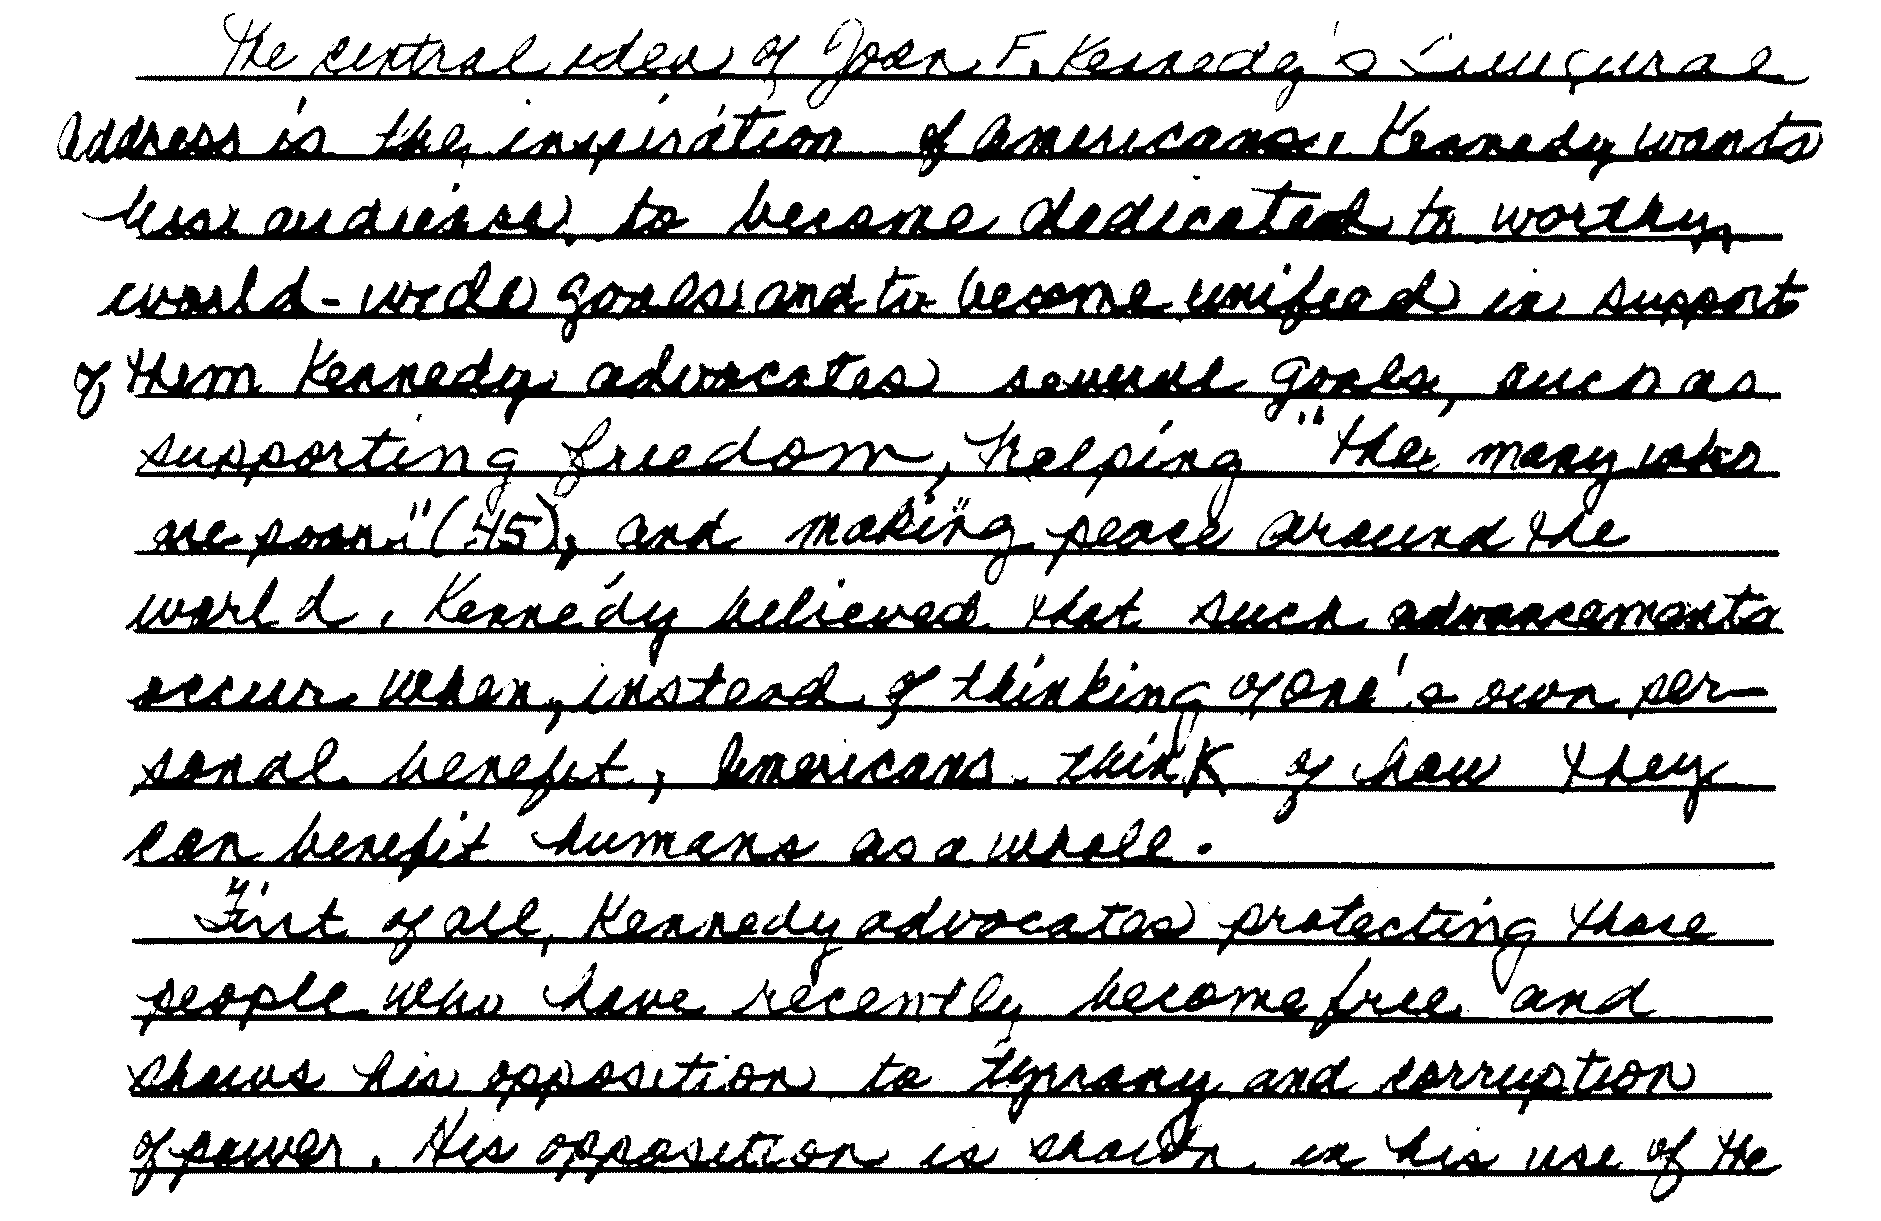 The central idea of John F. Kennedy's Inaugural
Address is the inspiration of Americans. Kennedy wants
his audience to become dedicated to worthy,
world-wide goals and to become unified in support
of them Kennedy advocates several goals, such as
supporting freedom, helping "the many who
are poor" (45), and making peace around the
world. Kennedy believed that such advancements
occur when, instead of thinking of one's own per-
sonal benefit, Americans think of how they
can benefit humans as a whole.
First of all, Kennedy advocates protecting those
people who have recently become free and
shows his opposition to tyranny and corruption
of power. His opposition is shown in his use of the